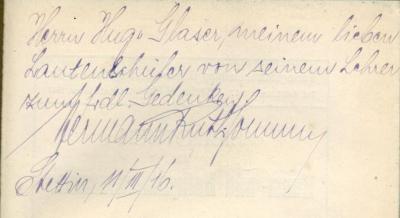 Herrn Hugo Glaser, meinem lieben
Lautenschüler von seinem Lehrer
zum frdl. Gedenken!
Hermann
Stettin, 11/III/16.